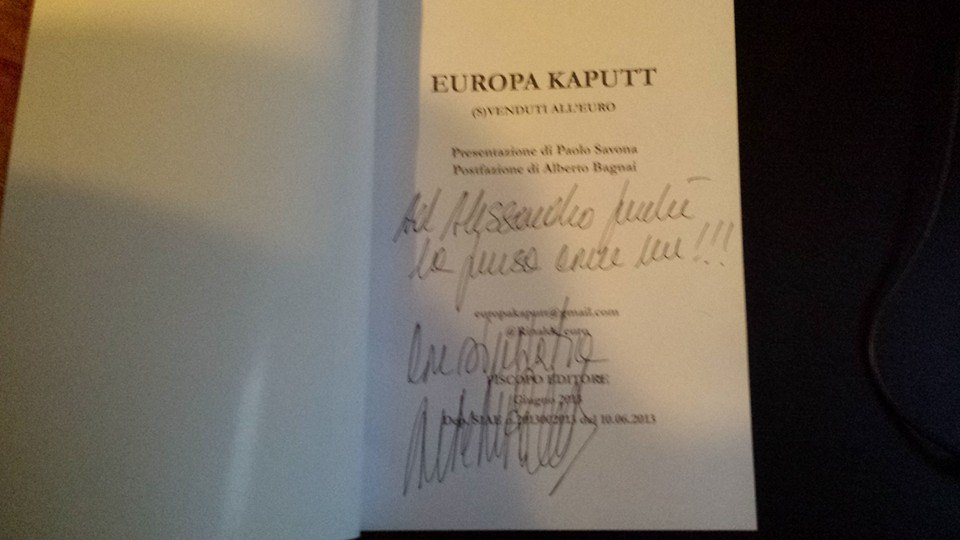 EUROPA KAPUTT
(S)VENDUTI ALL'EURO
Presentazione di Paolo Savona
Postfazione di Alberto Bagnai
Ad Alessandro perché
la pensa come me!!!
europakaputt@gmail.com
@Rinaldi_euro
Con simpatia
PISCOPO EDITORE
Giugno 2013
Dep. SIAE del 10.06.2013